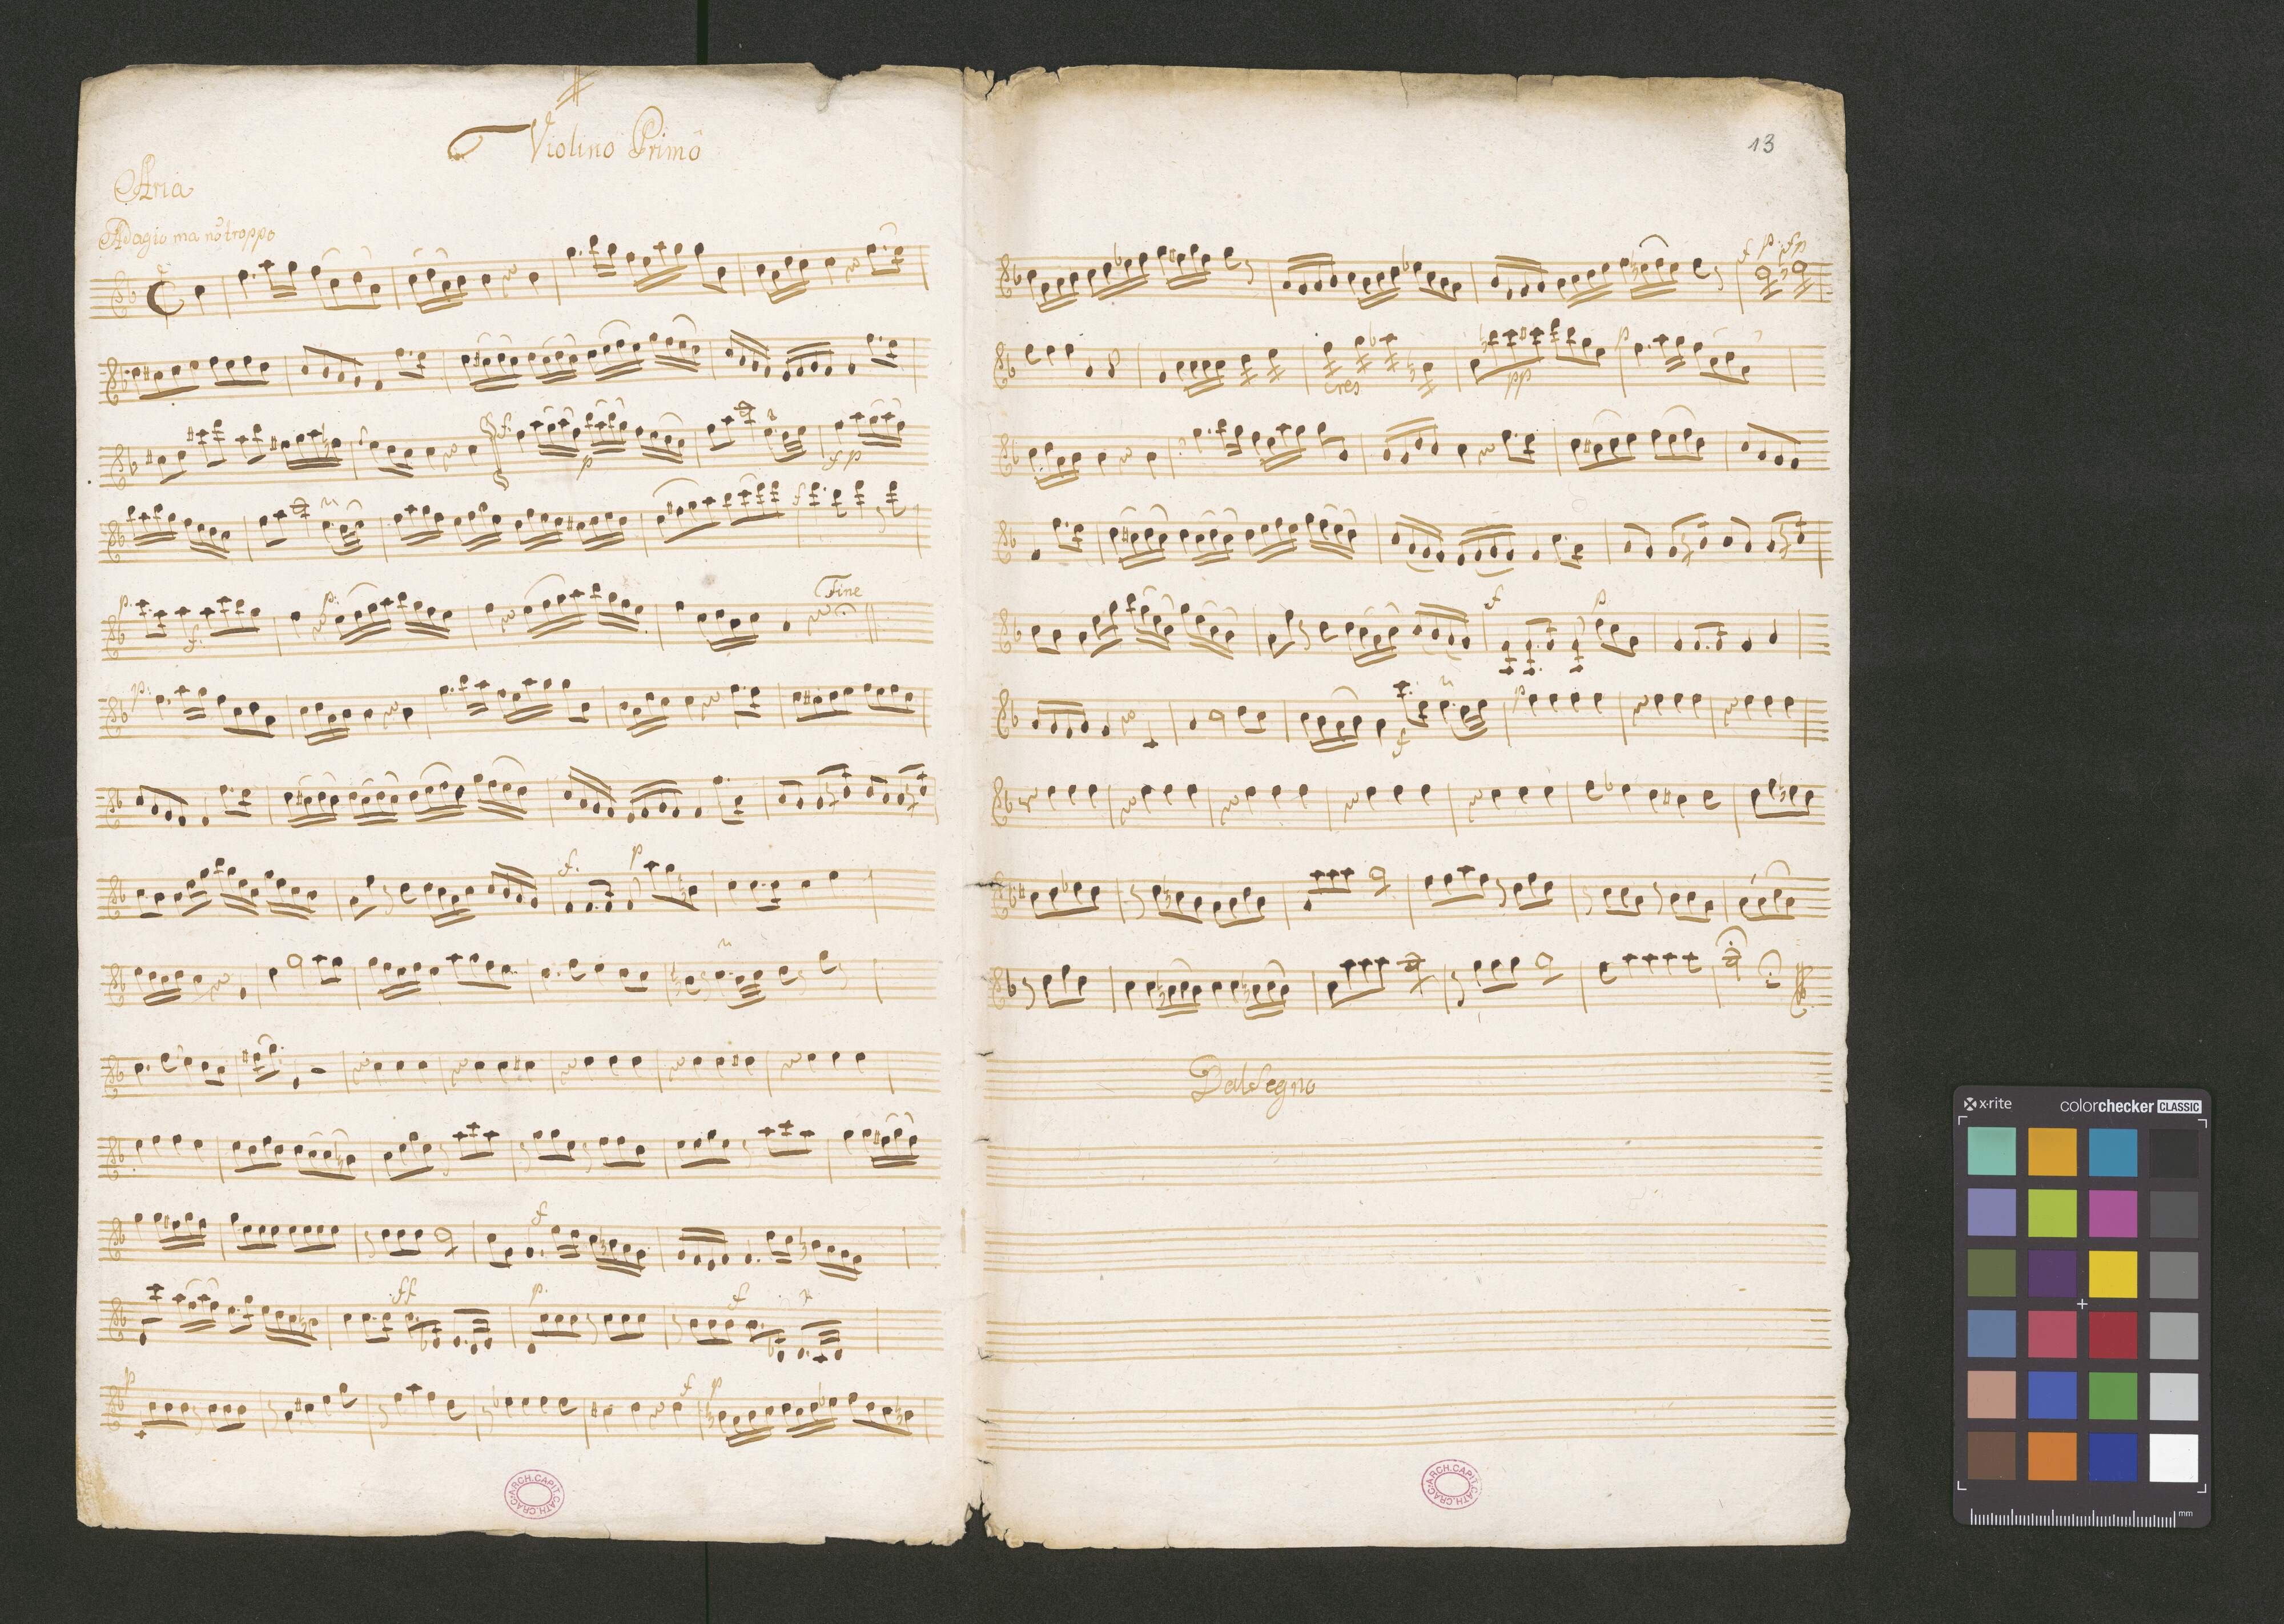 Violino Primo
Aria
Adagio ma nō troppo
f.
p
f p
f
p.
f.
p:
Fine
p:
f.
p
f
ff
p.
f
p
f
p
ARCH.CAPIT.CATH.CRAC.
13
f p. fp
cres
pp
p
f
p
f
p
Dal Segno
ARCH.CAPIT.CATH.CRAC.
x-rite
colorchecker CLASSIC
mm